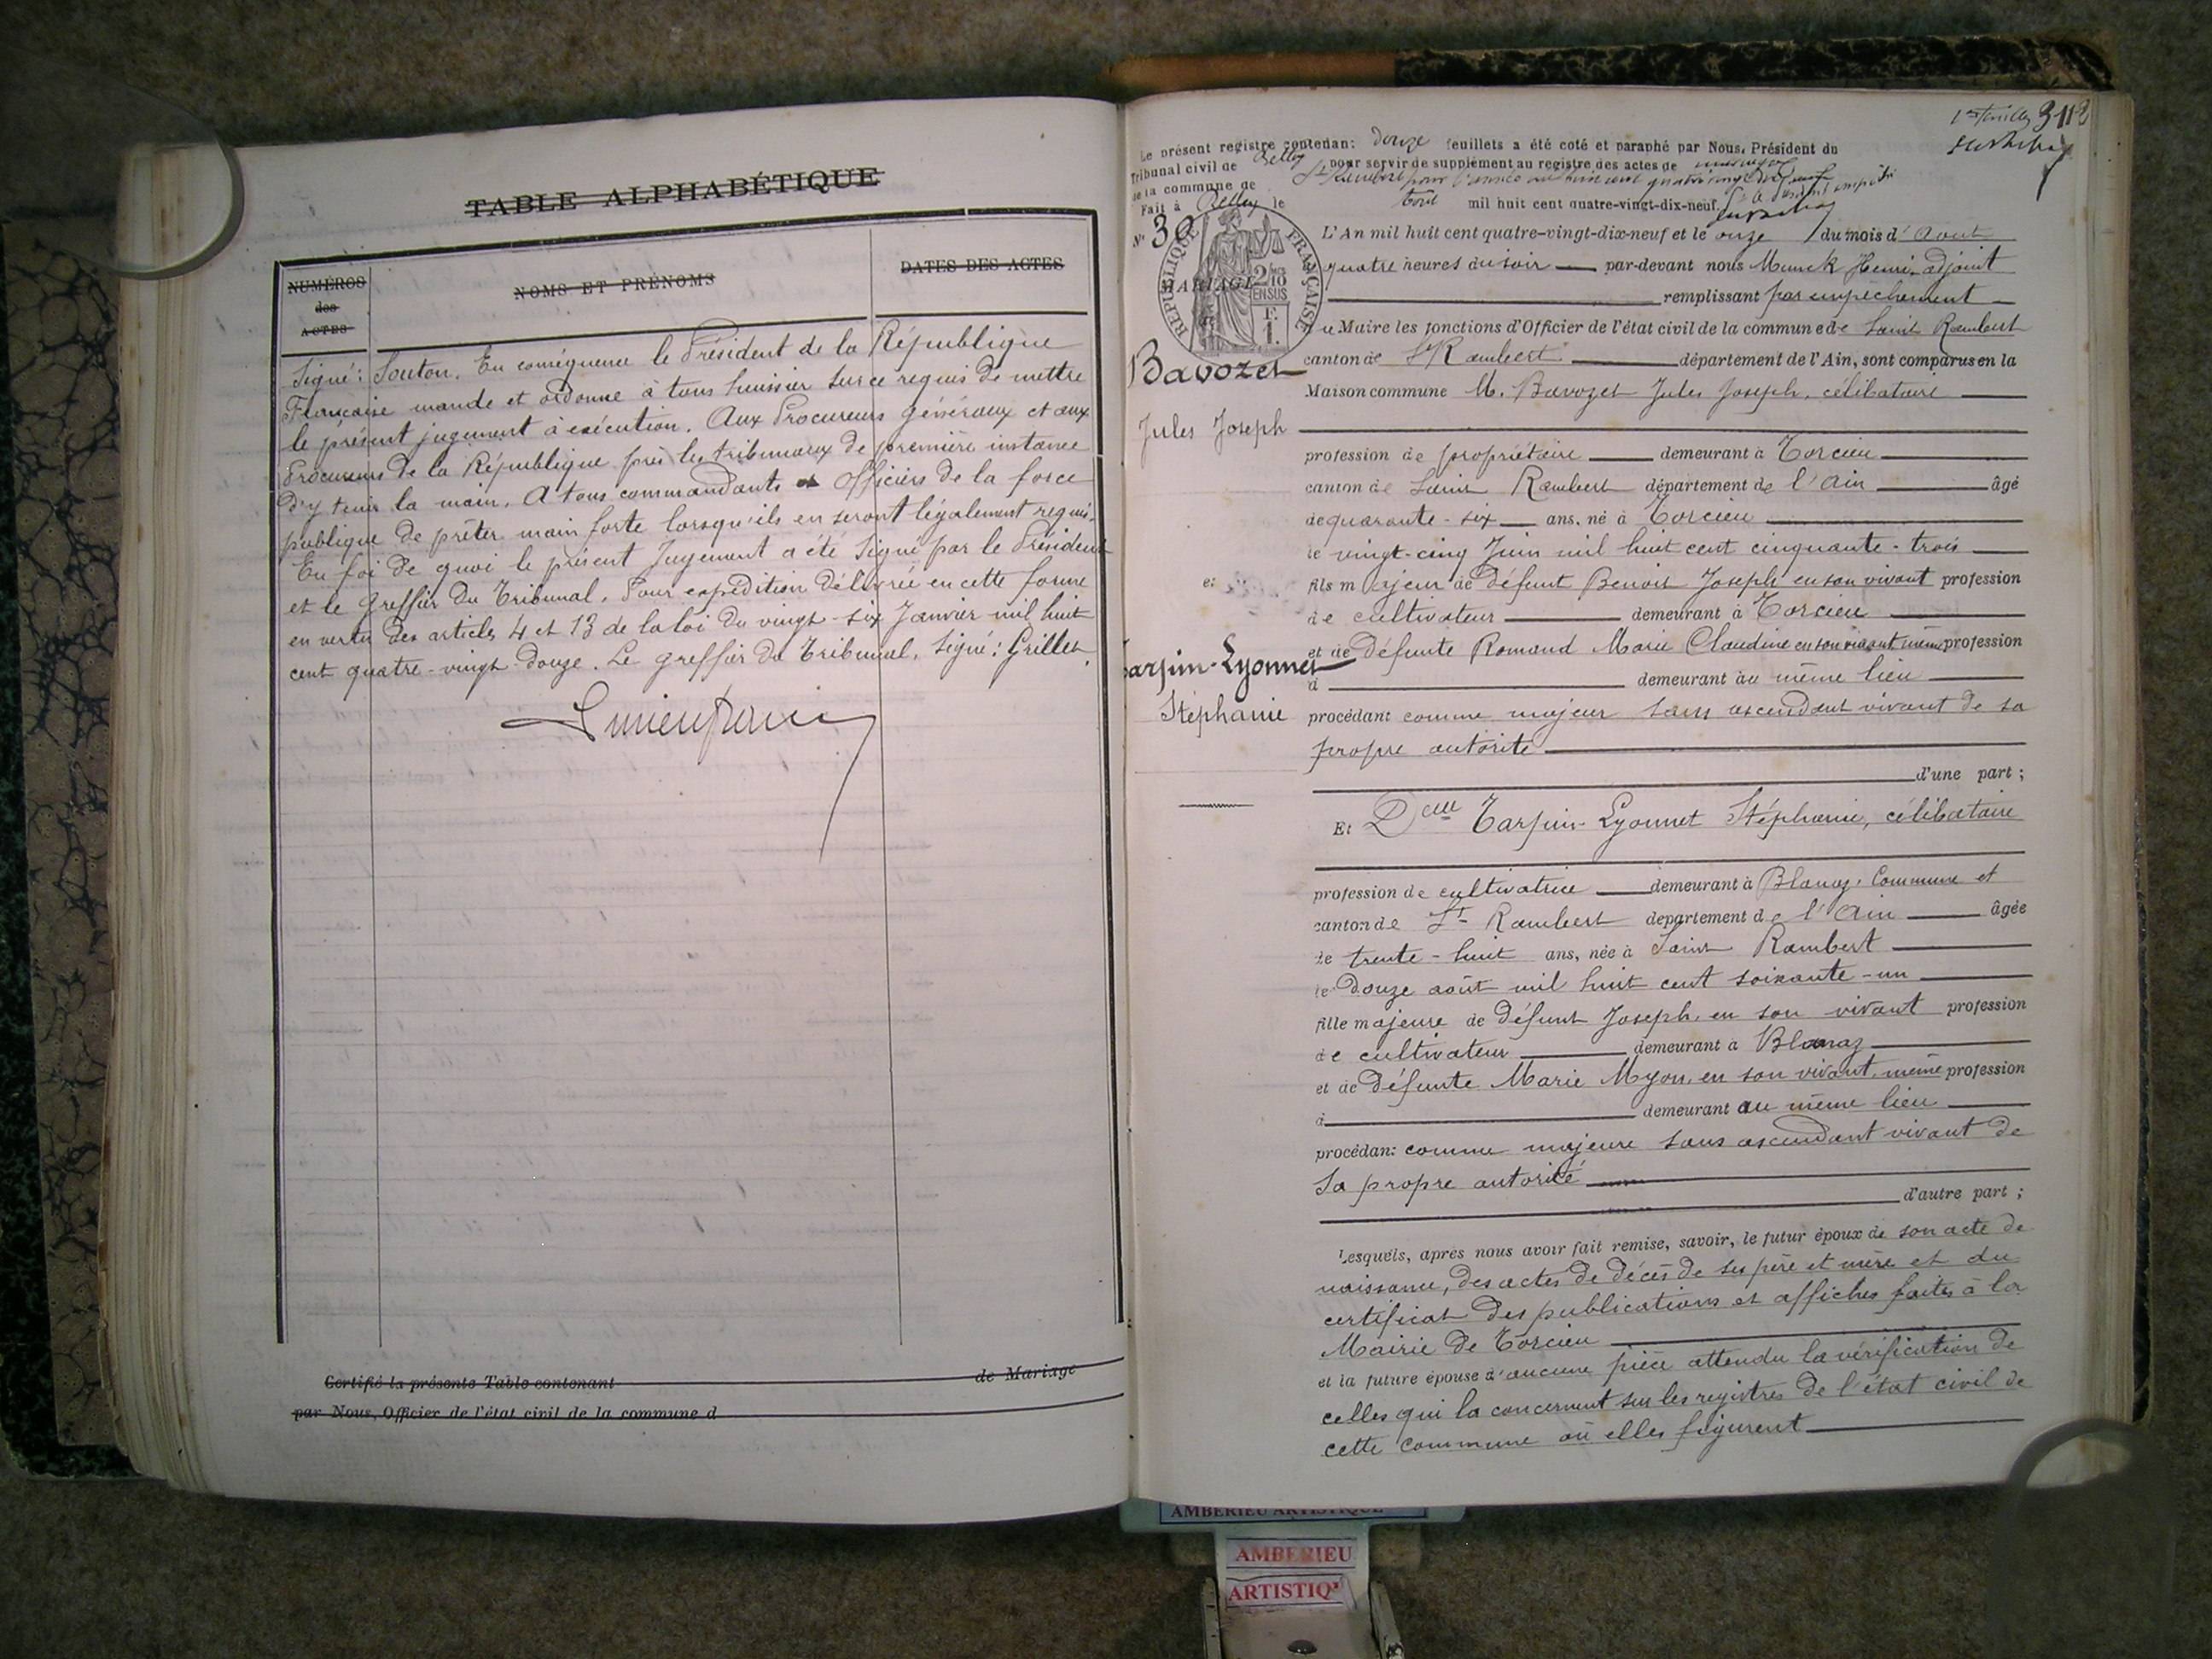 TABLE ALPHABÉTIQUE
NUMÉROS
des
ACTES
NOMS ET PRÉNOMS
DATES DES ACTES
Signé: Souton. En conséquence le Président de la République
Française mande et ordonne à tous huissier sur ce requis de mettre
le présent jugement à exécution. Aux Procureurs généraux et aux
Procureurs de la République près les tribunaux de première instance
d'y tenir la main. A tous commandants et Officiers de la force
publique de prêter main forte lorsqu'ils en seront légalement requis.
En foi de quoi le présent Jugement a été Signé par le Président
et le Greffier du Tribunal. Pour expédition délivrée en cette forme
en vertu des articles 4 et 13 de la loi du vingt-six Janvier mil huit
cent quatre-vingt-douze. Le greffier du Tribunal. Signé: Grillet.
Certifié la présente Table contenant de Mariage
par Nous, Officier de l'état civil de la commune d
1er feuillet 3112
Le présent registre contenan: douze feuillets a été coté et paraphé par Nous, Président du
Tribunal civil de Belley pour servir de supplément au registre des actes de mariages
de la commune de St Rambert pour l'année mil huit cent quatre vingt dix neuf
Fait à Belley le août mil huit cent quatre-vingt-dix-neuf.
N° 30
RÉPUBLIQUE FRANÇAISE
MARIAGE
2/10
EN SUS
F.
1.
L'An mil huit cent quatre-vingt-dix-neuf et le onze du mois d'Aout
quatre heures du soir par-devant nous Munck Henri, adjoint
remplissant par empêchement
du Maire les fonctions d'Officier de l'état civil de la commune de Saint Rambert
canton de St Rambert département de l'Ain, sont comparus en la
Bavozet
Maison commune M. Bavozet Jules Joseph, célibataire
Jules Joseph
profession de propriétaire demeurant à Torcieu
canton de Saint Rambert département de l'Ain âgé
de quarante-six ans, né à Torcieu
le vingt-cinq Juin mil huit cent cinquante-trois
et
fils majeur de défunt Benoit Joseph en son vivant profession
de cultivateur demeurant à Torcieu
et de défunte Romand Marie Claudine en son vivant même profession
Tarpin-Lyonnet
d demeurant au même lieu
Stéphanie
procédant comme majeur sans ascendant vivant de sa
propre autorité
d'une part;
Et Delle Tarpin-Lyonnet Stéphanie, célibataire
profession de cultivatrice demeurant à Blanaz. Commune et
canton de St Rambert département de l'Ain âgée
de trente-huit ans, née à Saint Rambert
le douze août mil huit cent soixante-un
fille majeure de défunt Joseph, en son vivant profession
de cultivateur demeurant à Blanaz
et de défunte Marie Myon, en son vivant, même profession
d demeurant au même lieu
procédan: comme majeure sans ascendant vivant de
sa propre autorité
d'autre part;
Lesquels, après nous avoir fait remise, savoir, le futur époux de son acte de
naissance, des actes de décès de ses père et mère et du
certificat des publications et affiches faites à la
Mairie de Torcieu
et la future épouse d'aucune pièce attendu la vérification de
celles qui la concernent sur les registres de l'état civil de
cette Commune où elles figurent
AMBERIEU ARTISTIQUE
AMBERIEU
ARTISTIQ